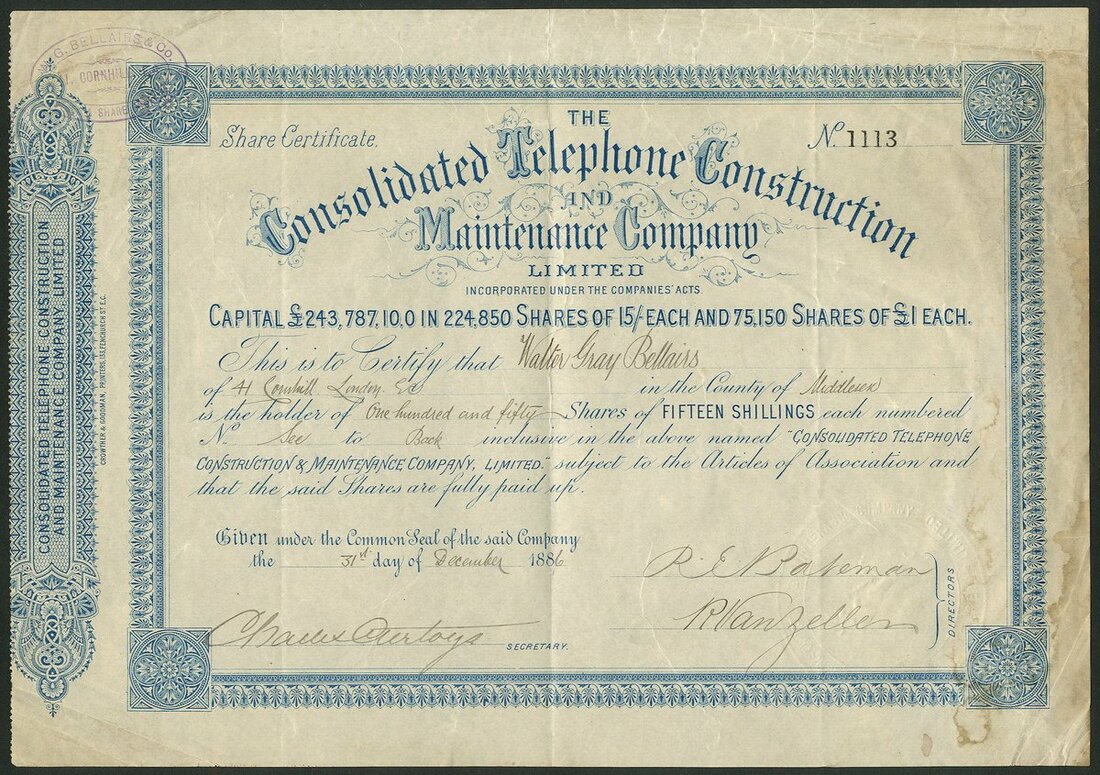 G. BELLAIRS & CO.
CORNHILL
SHARE
THE
Share Certificate.
No. 1113
Consolidated Telephone Construction
AND
Maintenance Company
LIMITED
INCORPORATED UNDER THE COMPANIES' ACTS
CAPITAL £243,787,10,0 IN 224,850 SHARES OF 15/- EACH AND 75,150 SHARES OF £1 EACH.
This is to Certify that Walter Gray Bellairs
of 41 Cornhill London E.C. in the County of Middlesex
is the holder of One hundred and fifty Shares of FIFTEEN SHILLINGS each numbered
No. See to Back inclusive in the above named "CONSOLIDATED TELEPHONE
CONSTRUCTION & MAINTENANCE COMPANY, LIMITED." subject to the Articles of Association and
that the said Shares are fully paid up.
Given under the Common Seal of the said Company
the 31st day of December 1886
R. E. N. Bateman
R Van Zeller
DIRECTORS
Charles
SECRETARY.
CONSOLIDATED TELEPHONE CONSTRUCTION
AND MAINTENANCE COMPANY, LIMITED
CROWTHER & GOODMAN, PRINTERS, 133, FENCHURCH ST. E.C.